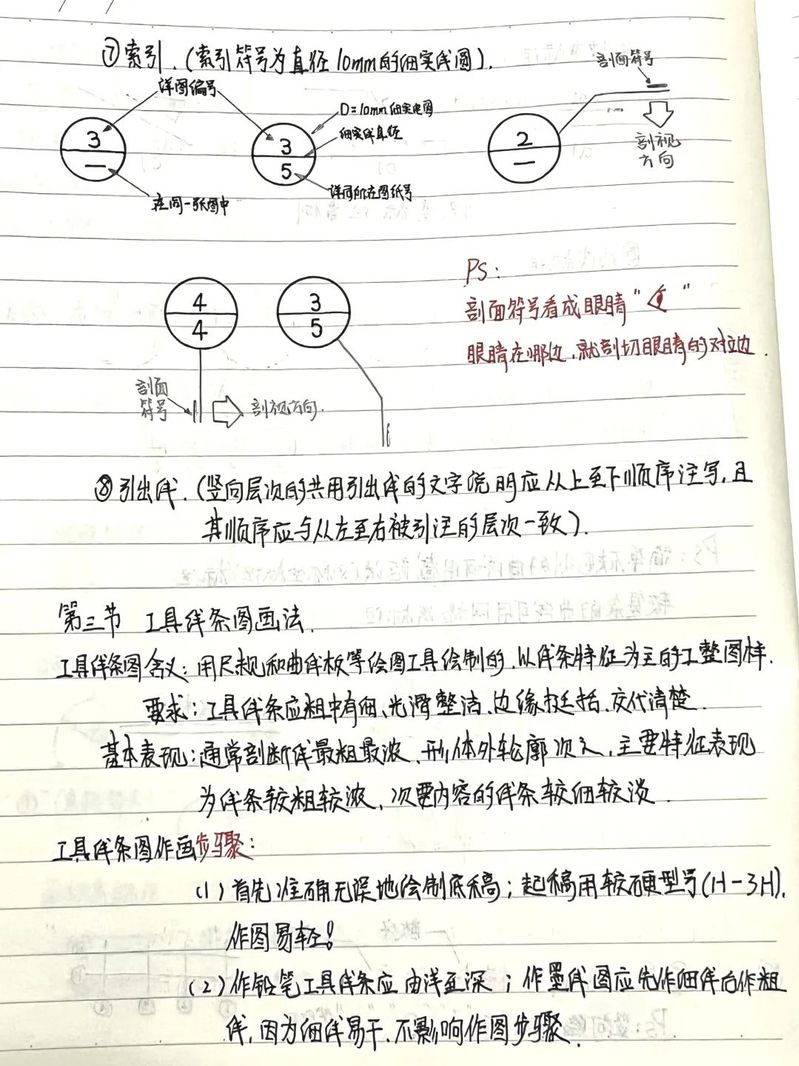 ⑦索引.(索引符号为直径10mm的细实线圆).
详图编号
剖面符号
D=10mm细实线圆
细实线直径
3
—
3
5
2
—
剖视
方向
在同一张图中
详图所在图纸号
4
4
3
5
PS:
剖面符号看成眼睛“ ”
眼睛在哪边,就剖切眼睛的对立边.
剖面
符号
剖视方向.
⑧引出线.(竖向层次的共用引出线的文字说明应从上至下顺序注写,且
其顺序应与从左至右被引注的层次一致).
第三节 工具线条图画法.
工具线条图含义:用尺规和曲线板等绘图工具绘制的,以线条特征为主的工整图样.
要求:工具线条应粗中有细、光滑整洁、边缘挺括、交代清楚.
基本表现:通常剖断线最粗最浓、形体外轮廓次之,主要特征表现
为线条较粗较浓,次要内容的线条较细较淡.
工具线条图作画步骤:
(1)首先准确无误地绘制底稿;起稿用较硬型号(H-3H),
作图易轻!
(2)作铅笔工具线条应由浅至深;作墨线图应先作细线后作粗
线,因为细线易干,不影响作图步骤.